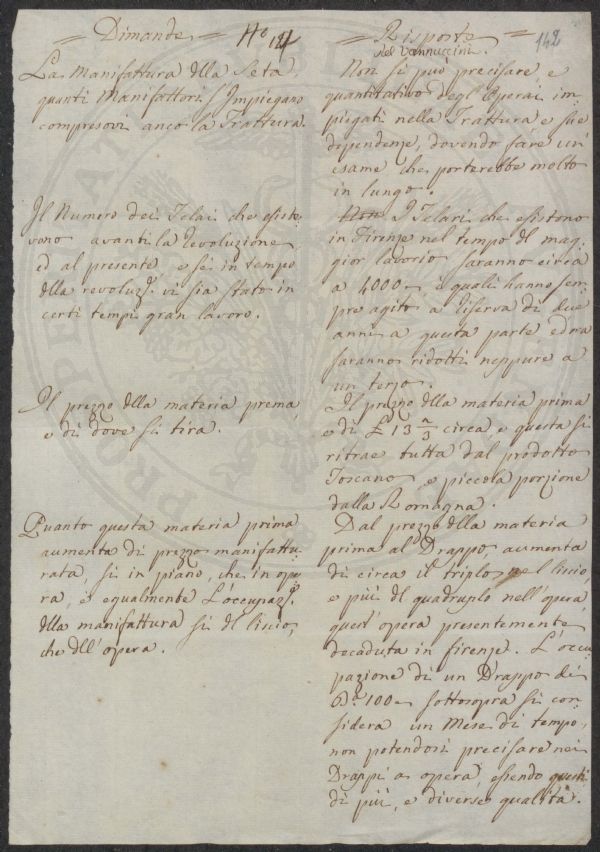 = Dimande =
No 12
= Risposte =
del Vannuccini.
142
La Manifattura dlla Seta,
quanti Manifattori s'Impiegano
compresovi anco la Trattura.
Non si può precisare, e
quantitativo degl'Operai im-
piegati nella Trattura e sue
dependenze, dovendo fare un'
esame che porterebbe molto
in lungo.
Il Numero dei Telai che esiste-
vano avanti la revoluzione,
ed al presente, e se in tempo
dlla revoluz.e vi sia stato in
certi tempi gran lavoro.
Non I Telari che esistono
in Firenze nel tempo dl mag-
gior lavorio saranno circa
a 4000 i quali hanno sem-
pre agito a riserva di due
anni a questa parte, ed ora
saranno ridotti neppure a
un terzo.
Il prezzo dlla materia prema,
e di dove si tira.
Il prezzo dlla materia prima
e di £ 13 circa e questa si
ritrae tutta dal prodotto
Toscano e piccola porzione
dalla Romagna.
Quanto questa materia prima
aumenta di prezzo manifattu-
rata, si in piano, che in ope-
ra, e egualmente L'occupaz.e
dlla manifattura si dl liscio,
che dll'opera.
Dal prezzo dlla materia
prima al Drappo, aumenta
di circa il triplo nel liscio,
e più dl quadruplo nell'opera,
quest'opera presentemente
decaduta in firenze. L'occu-
pazione di un Drappo di
100 sottosopra si con-
sidera un Mese di tempo,
non potendosi precisare nei
Drappi a opera, essendo questi
di più, e diverse qualità.